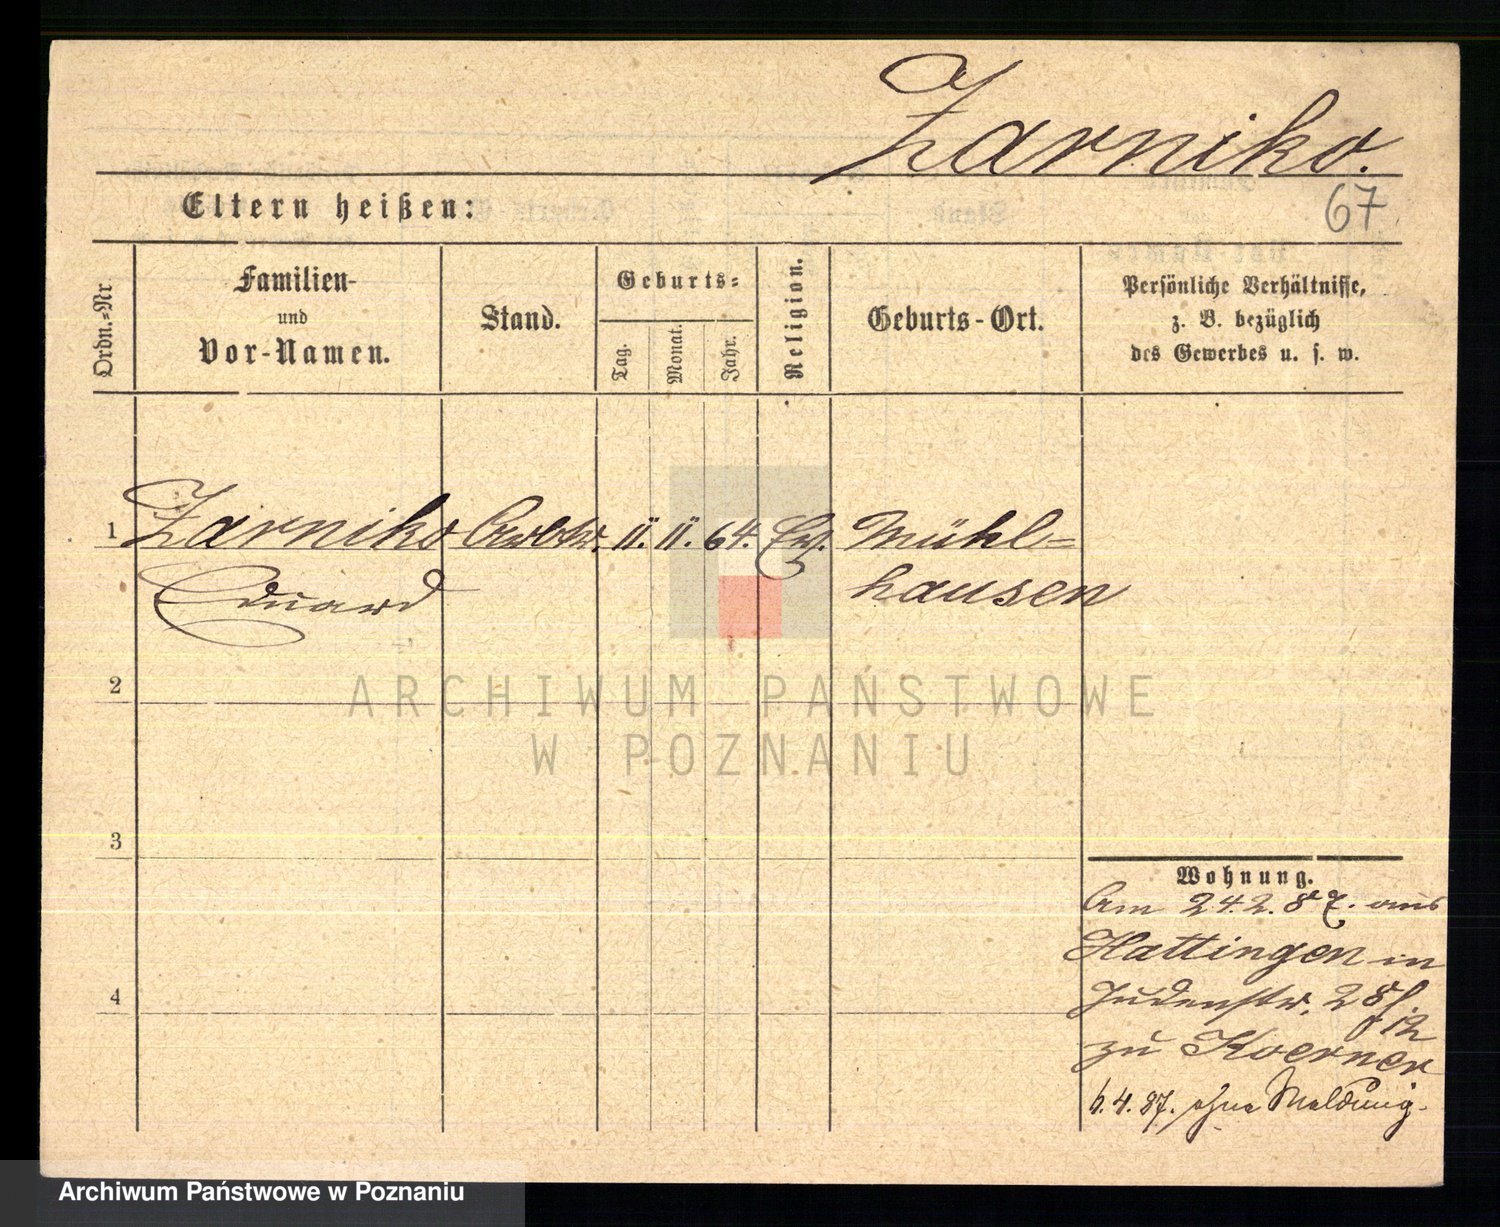 Zarniko.
67
Eltern heißen:
Ordn.-Nr.
Familien-
und
Vor-Namen.
Stand.
Geburts-
Tag.
Monat.
Jahr.
Religion.
Geburts-Ort.
Persönliche Verhältnisse,
z. B. bezüglich
des Gewerbes u. s. w.
1 Zarniko Arbtr. 11. 11. 64. Ev. Mühl-
Eduard hausen
2
3
4
Wohnung.
Am 24.2.87. aus
Hattingen in
Judenstr. 28
zu Koerner
6.4.87. ohne Meldung.
ARCHIWUM PAŃSTWOWE
W POZNANIU
Archiwum Państwowe w Poznaniu